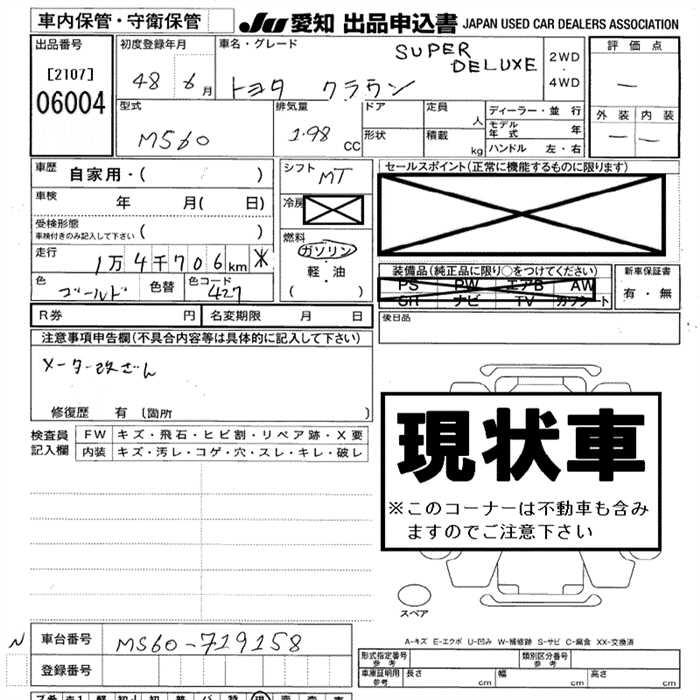 車内保管・守衛保管
JU 愛知 出品申込書 JAPAN USED CAR DEALERS ASSOCIATION
出品番号 初度登録年月 車名・グレード SUPER DELUXE 2WD・4WD 評価点
[2107] 06004 48 6月 トヨタ クラウン ー
型式 排気量 ドア 定員 人 ディーラー・並行 外装 内装
MS60 1.98 CC 形状 積載 kg モデル年式 年 ー ー
ハンドル 左・右
車歴 自家用・( ) シフト MT セールスポイント(正常に機能するものに限ります)
車検 年 月( 日) 冷房
受検形態 ( )
車検付きのみ記入して下さい
燃料 ガソリン・軽・油 ( )
走行 1万4千706km *
装備品(純正品に限り○をつけてください) 新車保証書
PS PW エアB AW 有・無
SR ナビ TV カワシート
色 ゴールド 色替 色コード 427
R券 円 名変期限 月 日 後日品
注意事項申告欄(不具合内容等は具体的に記入して下さい)
メーター改ざん
修復歴 有 〔箇所 〕
検査員記入欄 FW キズ・飛石・ヒビ割・リペア跡・X要
内装 キズ・汚レ・コゲ・穴・スレ・キレ・破レ
現状車
※このコーナーは不動車も含み
ますのでご注意下さい
スペア
A-キズ E-エクボ U-凹み W-補修跡 S-サビ C-腐食 XX-交換済
N 車台番号 MS60-719158
登録番号
形式指定番号 参考 類別区分番号 参考
車庫証明用 参考 長さ cm 幅 cm 高さ cm